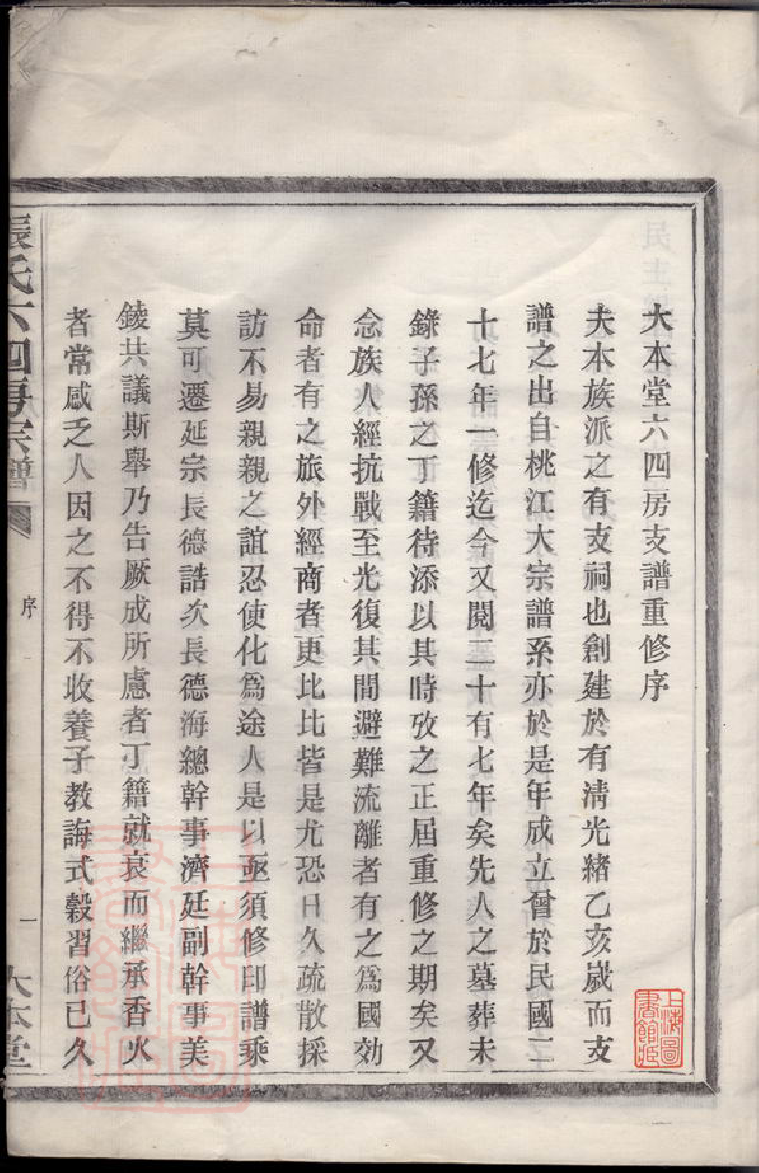 大本堂六四房支譜重修序
夫本族派之有支祠也創建於有清光緒乙亥歲而支
譜之出自桃江大宗譜系亦於是年成立曾於民國二
十七年一修迄今又閱二十有七年矣先人之墓葬未
錄子孫之丁籍待添以其時攷之正屆重修之期矣又
念族人經抗戰至光復其間避難流離者有之為國効
命者有之旅外經商者更比比皆是尤恐日久疏散採
訪不易親親之誼忍使化為途人是以亟須修印譜乘
莫可遷延宗長德誥次長德海總幹事濟廷副幹事美
錂共議斯舉乃告厥成所慮者丁籍就衰而繼承香火
者常感乏人因之不得不收養子教誨式穀習俗已久
張氏六四房宗譜
序
一
大本堂
上海圖書館藏